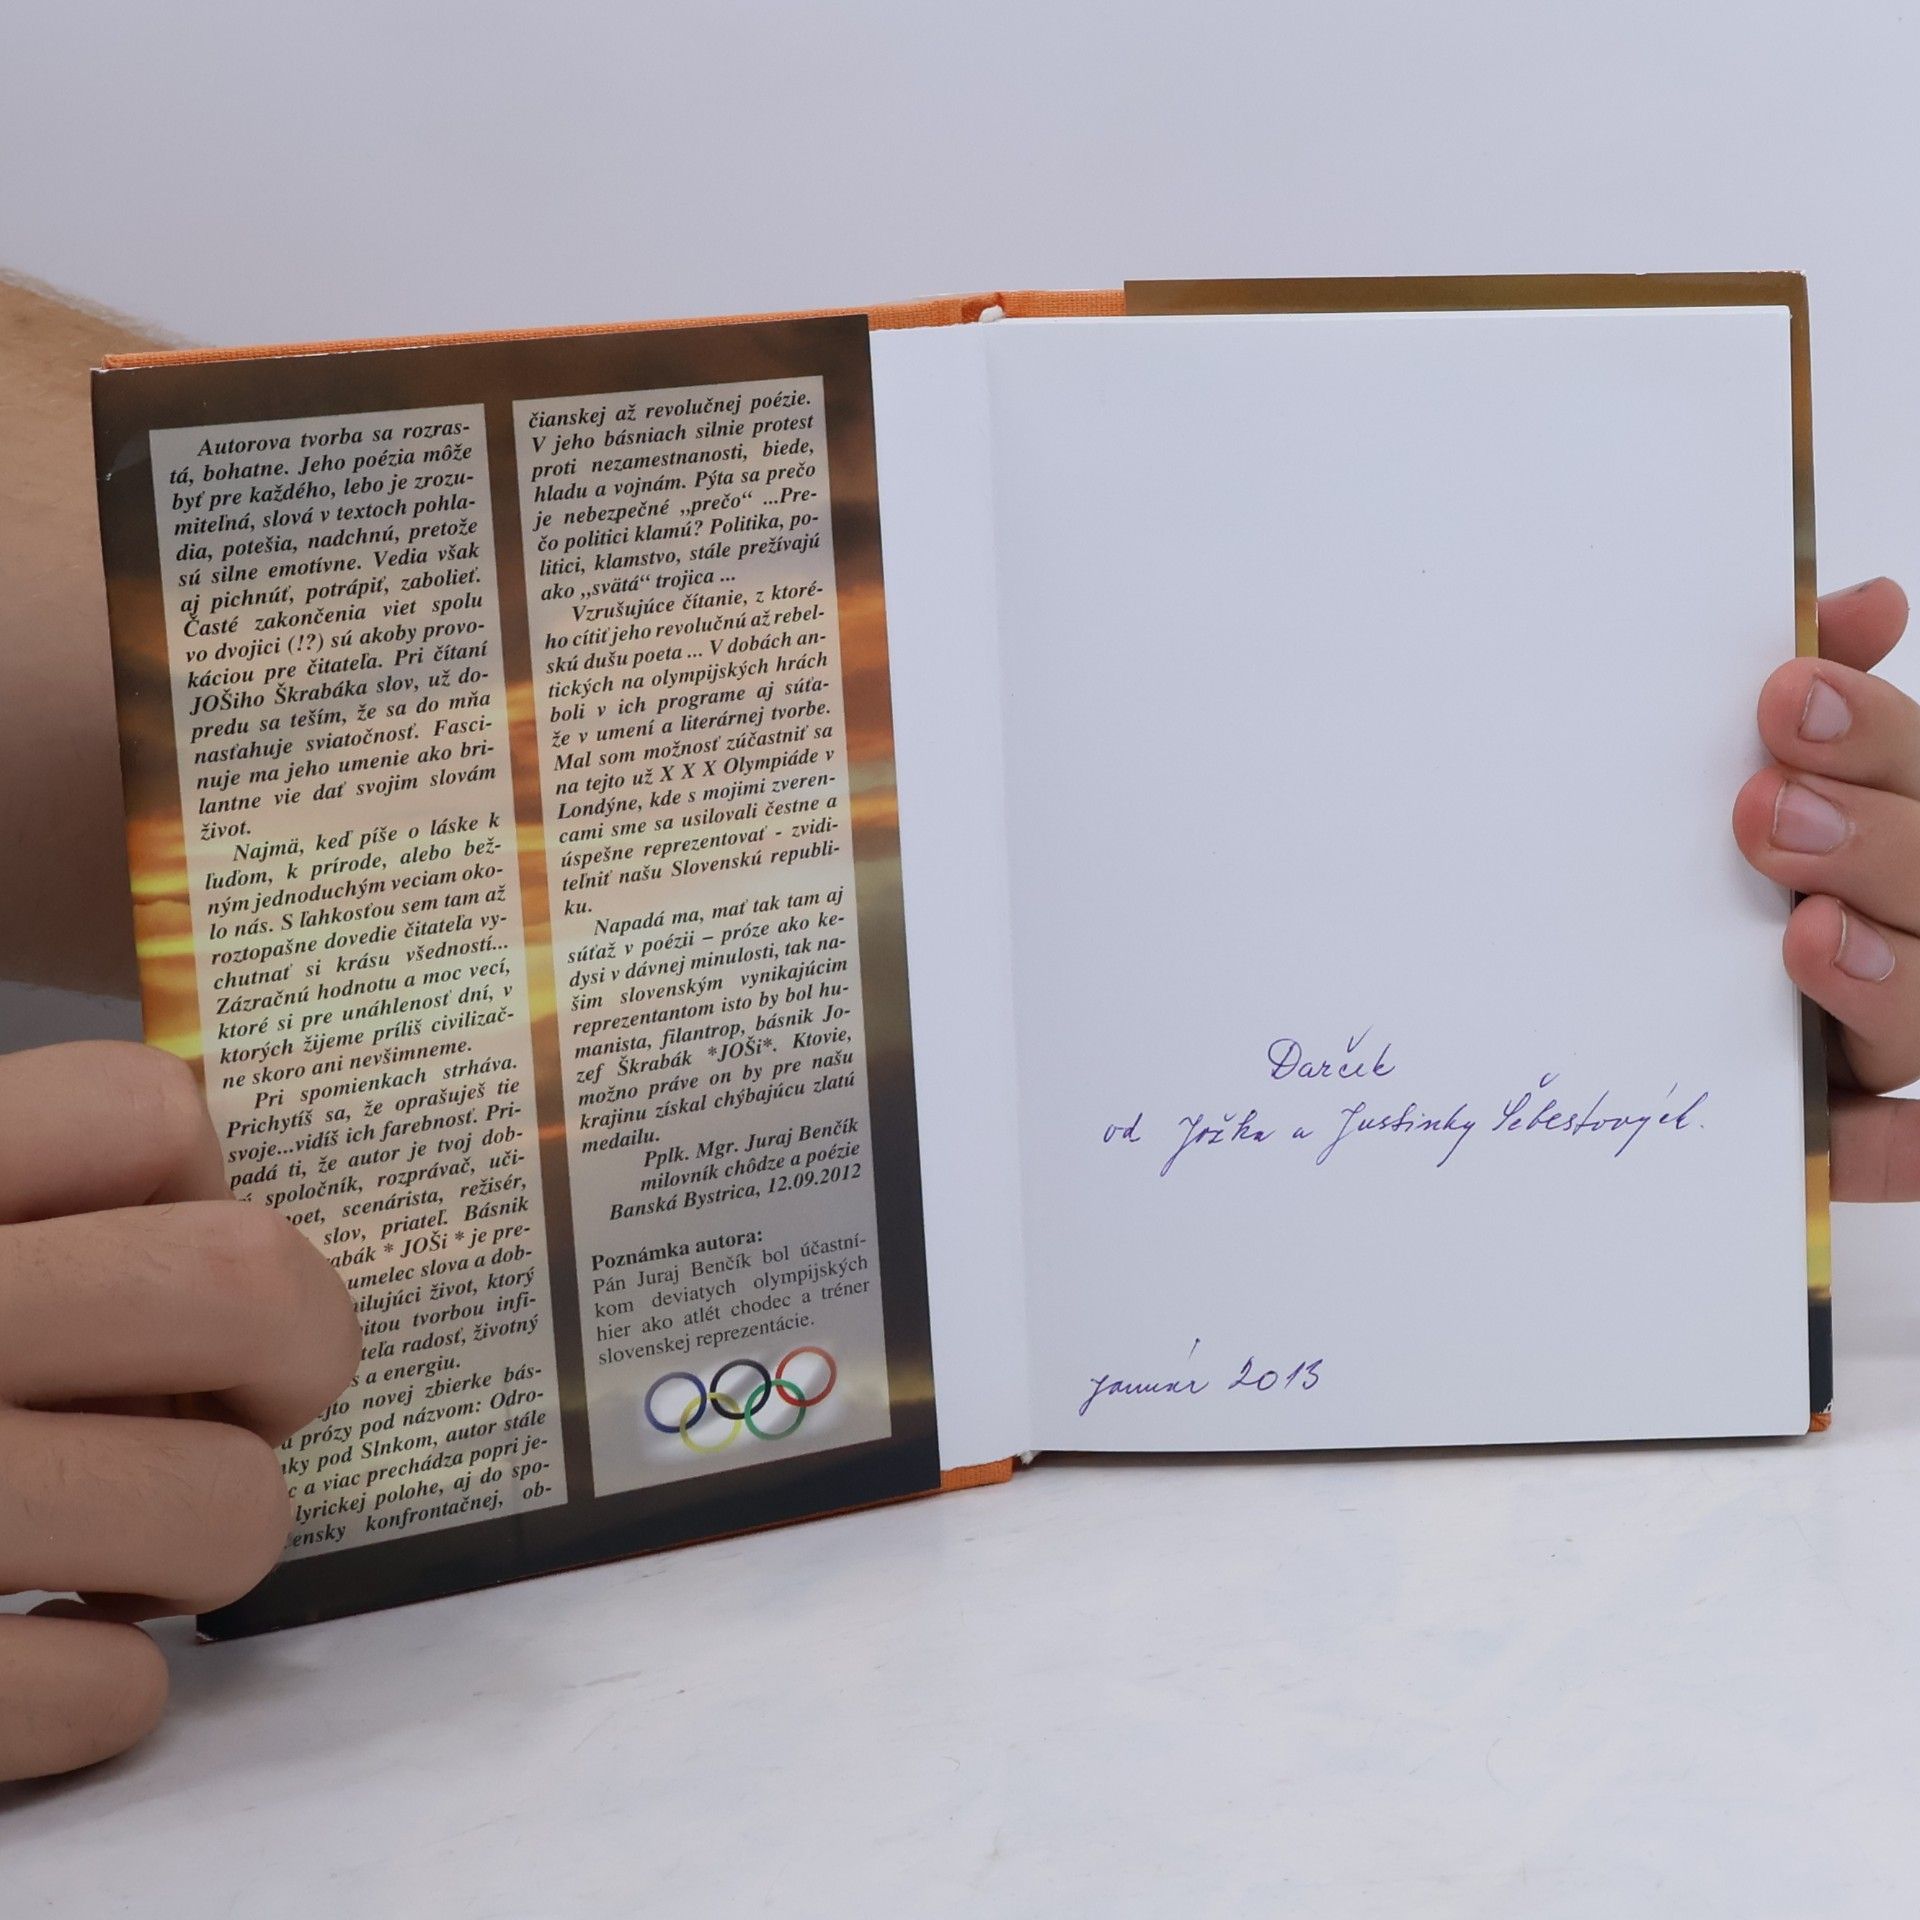 Autorova tvorba sa rozras-
tá, bohatne. Jeho poézia môže
byť pre každého, lebo je zrozu-
miteľná, slová v textoch pohla-
dia, potešia, nadchnú, pretože
sú silne emotívne. Vedia však
aj pichnúť, potrápiť, zabolieť.
Časté zakončenia viet spolu
vo dvojici (!?) sú akoby provo-
káciou pre čitateľa. Pri čítaní
JOŠiho Škrabáka slov, už do-
predu sa teším, že sa do mňa
nasťahuje sviatočnosť. Fasci-
nuje ma jeho umenie ako bri-
lantne vie dať svojim slovám
život.
Najmä, keď píše o láske k
ľuďom, k prírode, alebo bež-
ným jednoduchým veciam oko-
lo nás. S ľahkosťou sem tam až
roztopašne dovedie čitateľa vy-
chutnať si krásu všedností...
Zázračnú hodnotu a moc vecí,
ktoré si pre unáhlenosť dní, v
ktorých žijeme príliš civilizač-
ne skoro ani nevšimneme.
Pri spomienkach strháva.
Prichytíš sa, že oprašuješ tie
svoje...vidíš ich farebnosť. Pri-
padá ti, že autor je tvoj dob-
spoločník, rozprávač, uči-
poet, scenárista, režisér,
slov, priateľ. Básnik
rabák * JOŠi * je pre-
umelec slova a dob-
milujúci život, ktorý
itou tvorbou infi-
teľa radosť, životný
s a energiu.
ejto novej zbierke bás-
a prózy pod názvom: Odro-
nky pod Slnkom, autor stále
c a viac prechádza popri je-
lyrickej polohe, aj do spo-
čensky konfrontačnej, ob-
čianskej až revolučnej poézie.
V jeho básniach silnie protest
proti nezamestnanosti, biede,
hladu a vojnám. Pýta sa prečo
je nebezpečné „prečo“ ...Pre-
čo politici klamú? Politika, po-
litici, klamstvo, stále prežívajú
ako „svätá“ trojica ...
Vzrušujúce čítanie, z ktoré-
ho cítiť jeho revolučnú až rebel-
skú dušu poeta ... V dobách an-
tických na olympijských hrách
boli v ich programe aj súťa-
že v umení a literárnej tvorbe.
Mal som možnosť zúčastniť sa
na tejto už X X X Olympiáde v
Londýne, kde s mojimi zveren-
cami sme sa usilovali čestne a
úspešne reprezentovať - zvidi-
teľniť našu Slovenskú republi-
ku.
Napadá ma, mať tak tam aj
súťaž v poézii – próze ako ke-
dysi v dávnej minulosti, tak na-
šim slovenským vynikajúcim
reprezentantom isto by bol hu-
manista, filantrop, básnik Jo-
zef Škrabák *JOŠi*. Ktovie,
možno práve on by pre našu
krajinu získal chýbajúcu zlatú
medailu.
Pplk. Mgr. Juraj Benčík
milovník chôdze a poézie
Banská Bystrica, 12.09.2012
Poznámka autora:
Pán Juraj Benčík bol účastní-
kom deviatych olympijských
hier ako atlét chodec a tréner
slovenskej reprezentácie.
Darček
od Jožka a Justinky Šebestových.
január 2013